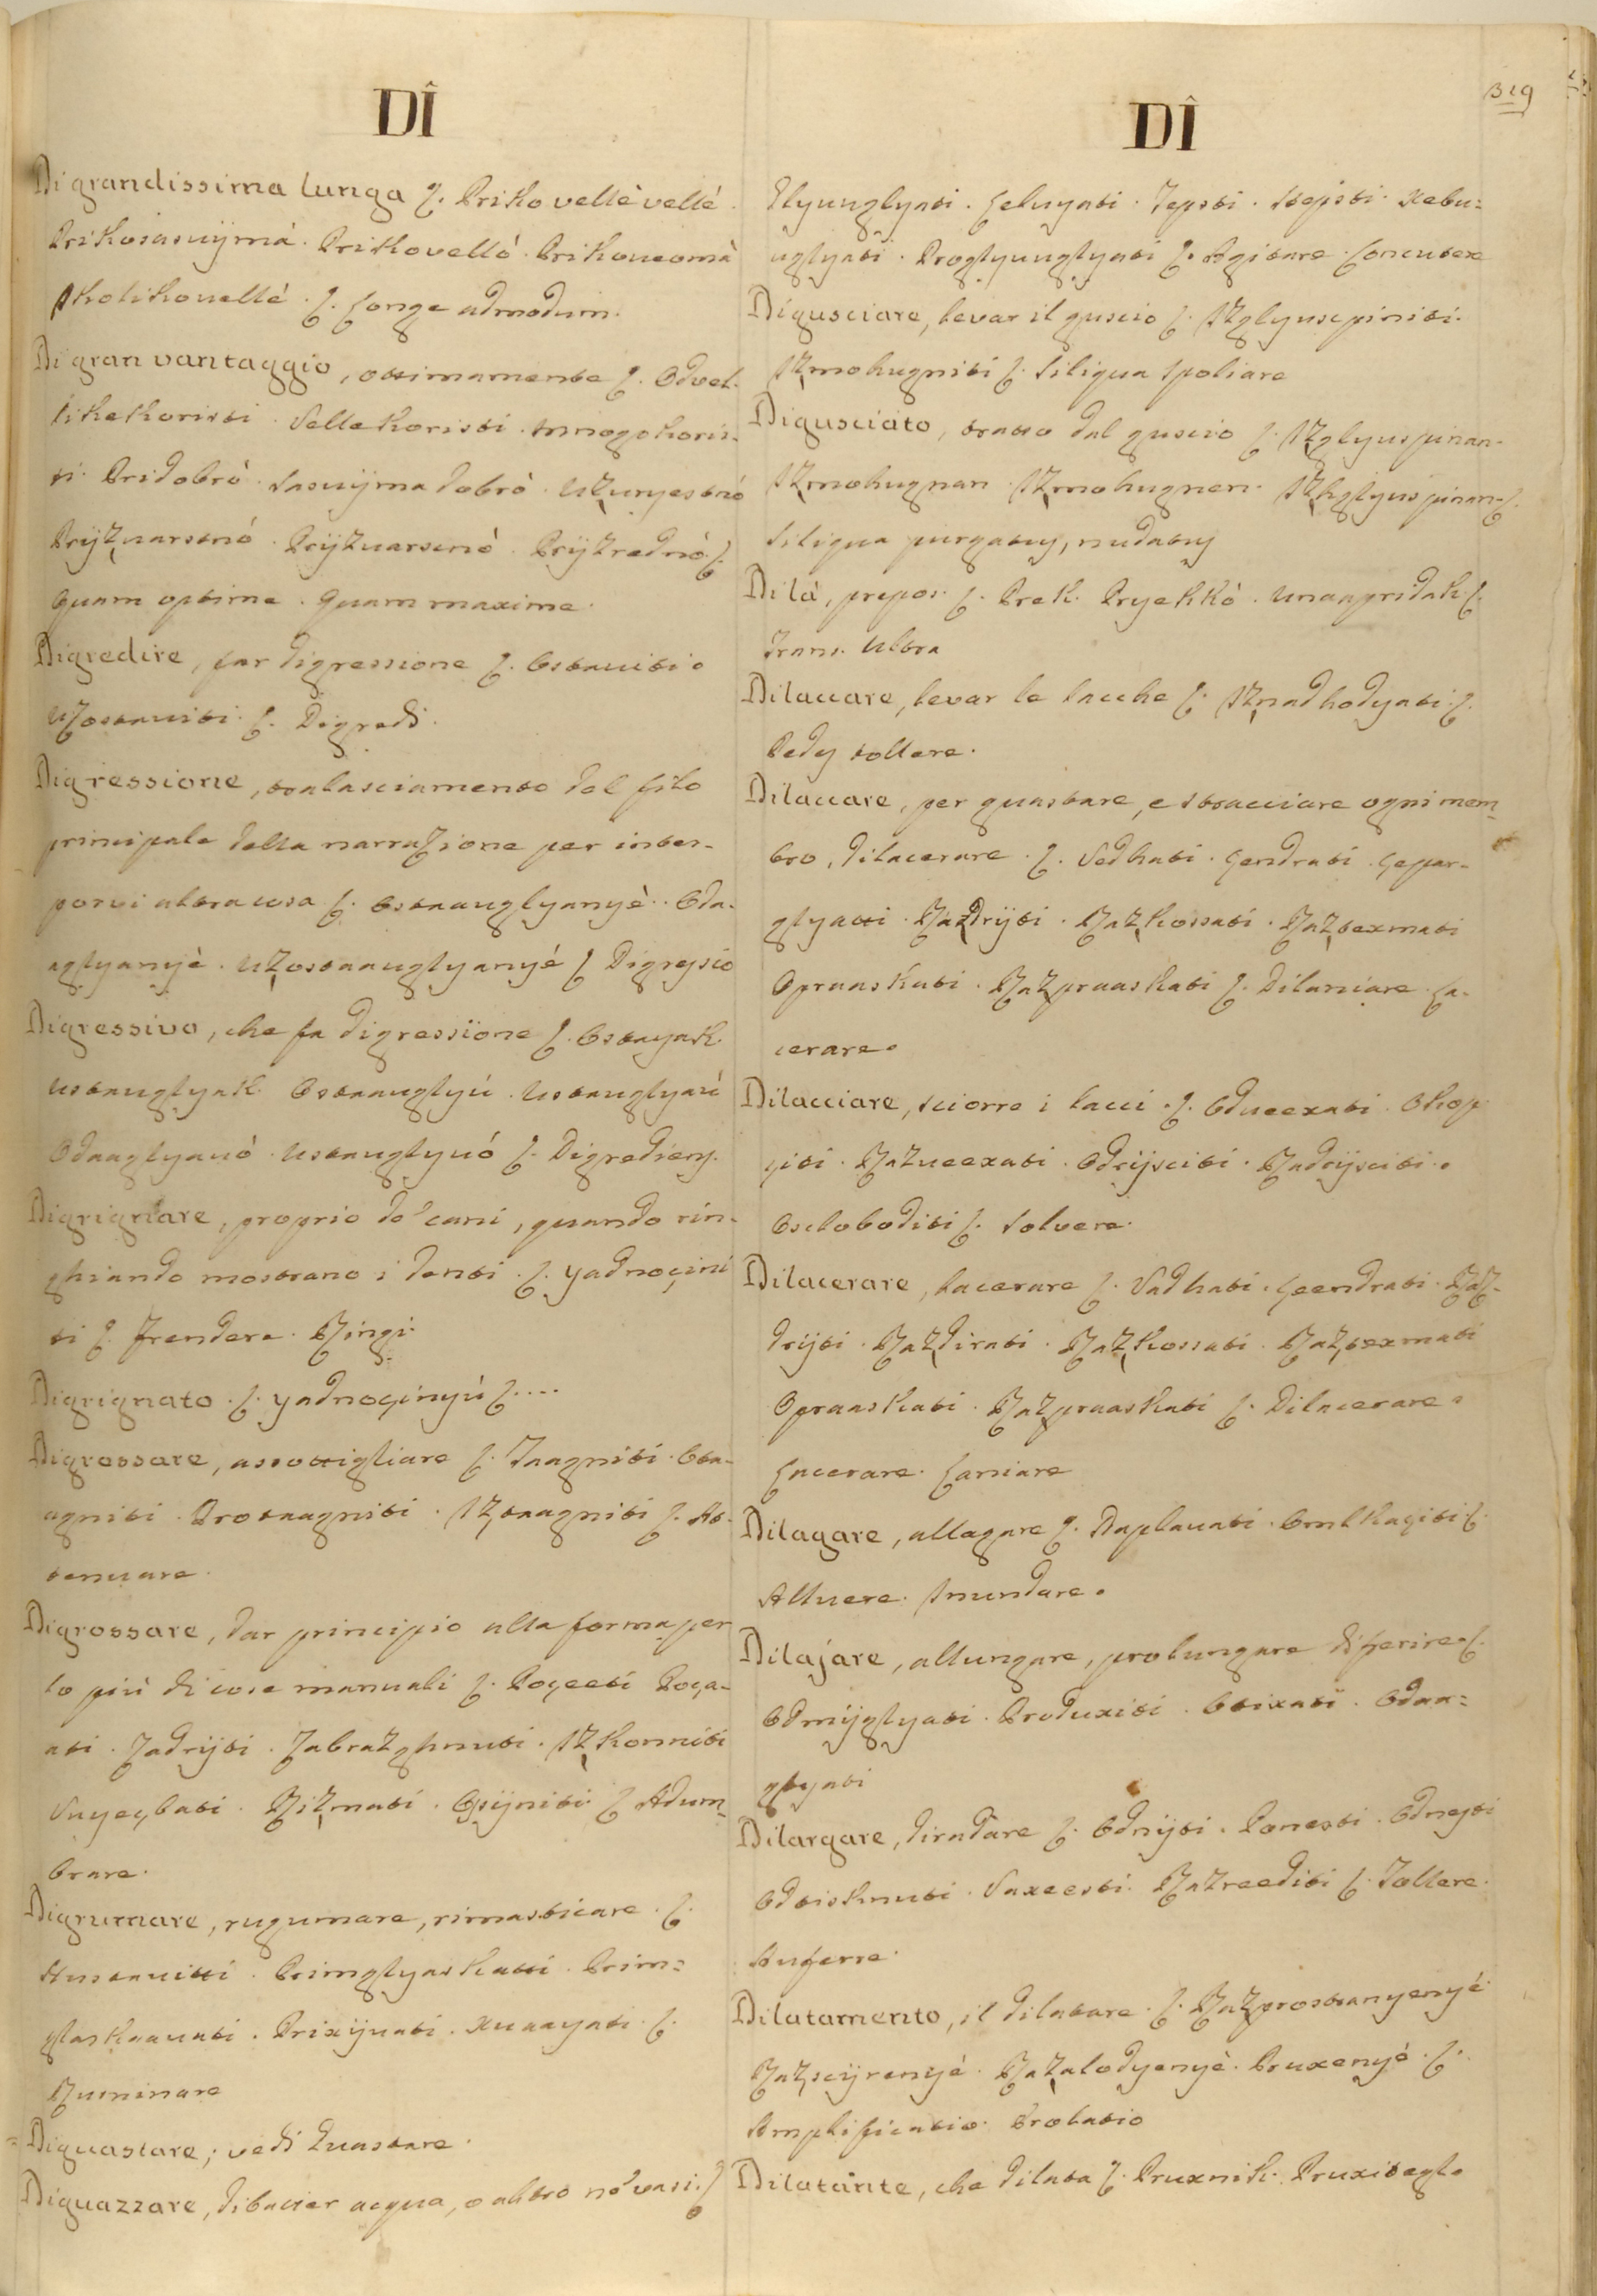 319
DÎ
Di grandissima lunga ʃ. Priko vellè vellè.
Prikosasuÿmà. Prikovellò. Prikoueomà
Kolikouellè. ʃ. Longe admodum.
Di gran vantaggio, ottimamente ʃ. Odvel-
likekoristi. Vellekoristi. mnogokoris-
ti. Pridobrò. Sasuÿma dobrò. Uzuryestnò
Prÿzuarstnò. Prÿzuarsnò. Prÿzrednò. ʃ.
Quam optime. Quam maxime.
Digredire, far digressione ʃ. Ostauiti.
Uzostauiti. ʃ. Digredi.
Digressione, tralasciamento del filo
principale della narrazione per inter-
porvi altra cosa ʃ. Ostaauglyanyè. Oda-
aglyanyè. Uzostaauglyanyé ʃ Digressio
Digressivo, che fa digressione ʃ. Ostayak.
Ustauglyak. Ostaauglyú. Ustauglyarú
Odaaglyauò. Ustauglyuó ʃ. Digrediens.
Digrignare, proprio de' cani, quando rin-
ghiando mostrano i denti. ʃ. Yadnoçini
ti ʃ. Frendere. Ringi.
Digrignato. ʃ. Yadnoçinyú ʃ....
Digrossare, assottigliare ʃ. Taagniti. Ota-
agniti. Protaagniti. Iztaagniti ʃ. At-
tenuare.
Digrossare, dar principio alla forma per
lo più di cose manuali ʃ. Poçeeti Poça-
ati. Zadrÿti. Zabrazghnuti. Izkonniti
Suyeçbati. Rizmati. Osÿniti ʃ Adum-
brare.
Digrumare, rugumare, rimasticare. ʃ.
Hustauitti. Primglyaskatti. Prim=
glaskaauati. Prixÿuati. Xuaayati. ʃ.
Ruminare
Diguastare; vedi Guastare.
Diguazzare, dibatter acqua, o altro ne' vasi. ʃ
DÎ
Elyunglyati. Celuyati. Tepsti. Stepsti. Xebu=
uglyati. Proglyunglyati ʃ. Agitare. Concutere
Digusciare, levar il guscio ʃ. Izglyuscpiniti.
Izmohugniti ʃ. Siliqua spoliare
Digusciato, tratto dal guscio ʃ. Izglyuspinan.
Izmohugnan. Izmohugnen. Izhglyuspinan. ʃ.
Siliqua purgatus, nudatus
Dilà, prepos. ʃ. Prek. Pryekkò. Unaapridak. ʃ.
Trans. Ultra
Dilaccare, levar le lacche ʃ. Iznadhodyati. ʃ.
Pedes tollere.
Dilaccare, per guastare, e stracciare ogni mem-
bro, dilacerare. ʃ. Vedhati. Çendrati. Çepar-
glyatti. Razdrÿti. Razkossati. Raztexmati
Opraaskati. Razpraaskati ʃ. Dilaniare. La-
cerare.
Dilacciare, sciorre i lacci. ʃ. Oduеexati. Okop
çiti. Razueexati. Odrÿsciti. Radrÿsciti.
Oscloboditi ʃ. Solvere.
Dilacerare, lacerare ʃ. Vadhati. Çeendrati. Raz-
drÿti. Razdirati. Razkossati. Raztexmati
Opraaskati. Razpraaskati ʃ. Dilacerare.
Lacerare. Laniare
Dilagare, allagare ʃ. Daplauati. Omlkaçiti ʃ.
Alluere. Inundare.
Dilajare, allungare, prolungare diferire. ʃ.
Odmÿglyati. Produxiti. Otixati. Odaa=
glyati
Dilargare, diradare ʃ. Odnÿti. Ponesti. Odnesti
Odtisknuti. Vaxeesti. Razreediti ʃ. Tollere.
Auferre.
Dilatamento, il dilatare. ʃ. Razprostranyenyé
Razscÿrenyé. Razalodyenyè. Pruxenyé. ʃ.
Amplificatio. Prolatio
Dilatante, che dilata ʃ. Pruxnik. Pruxitegl.